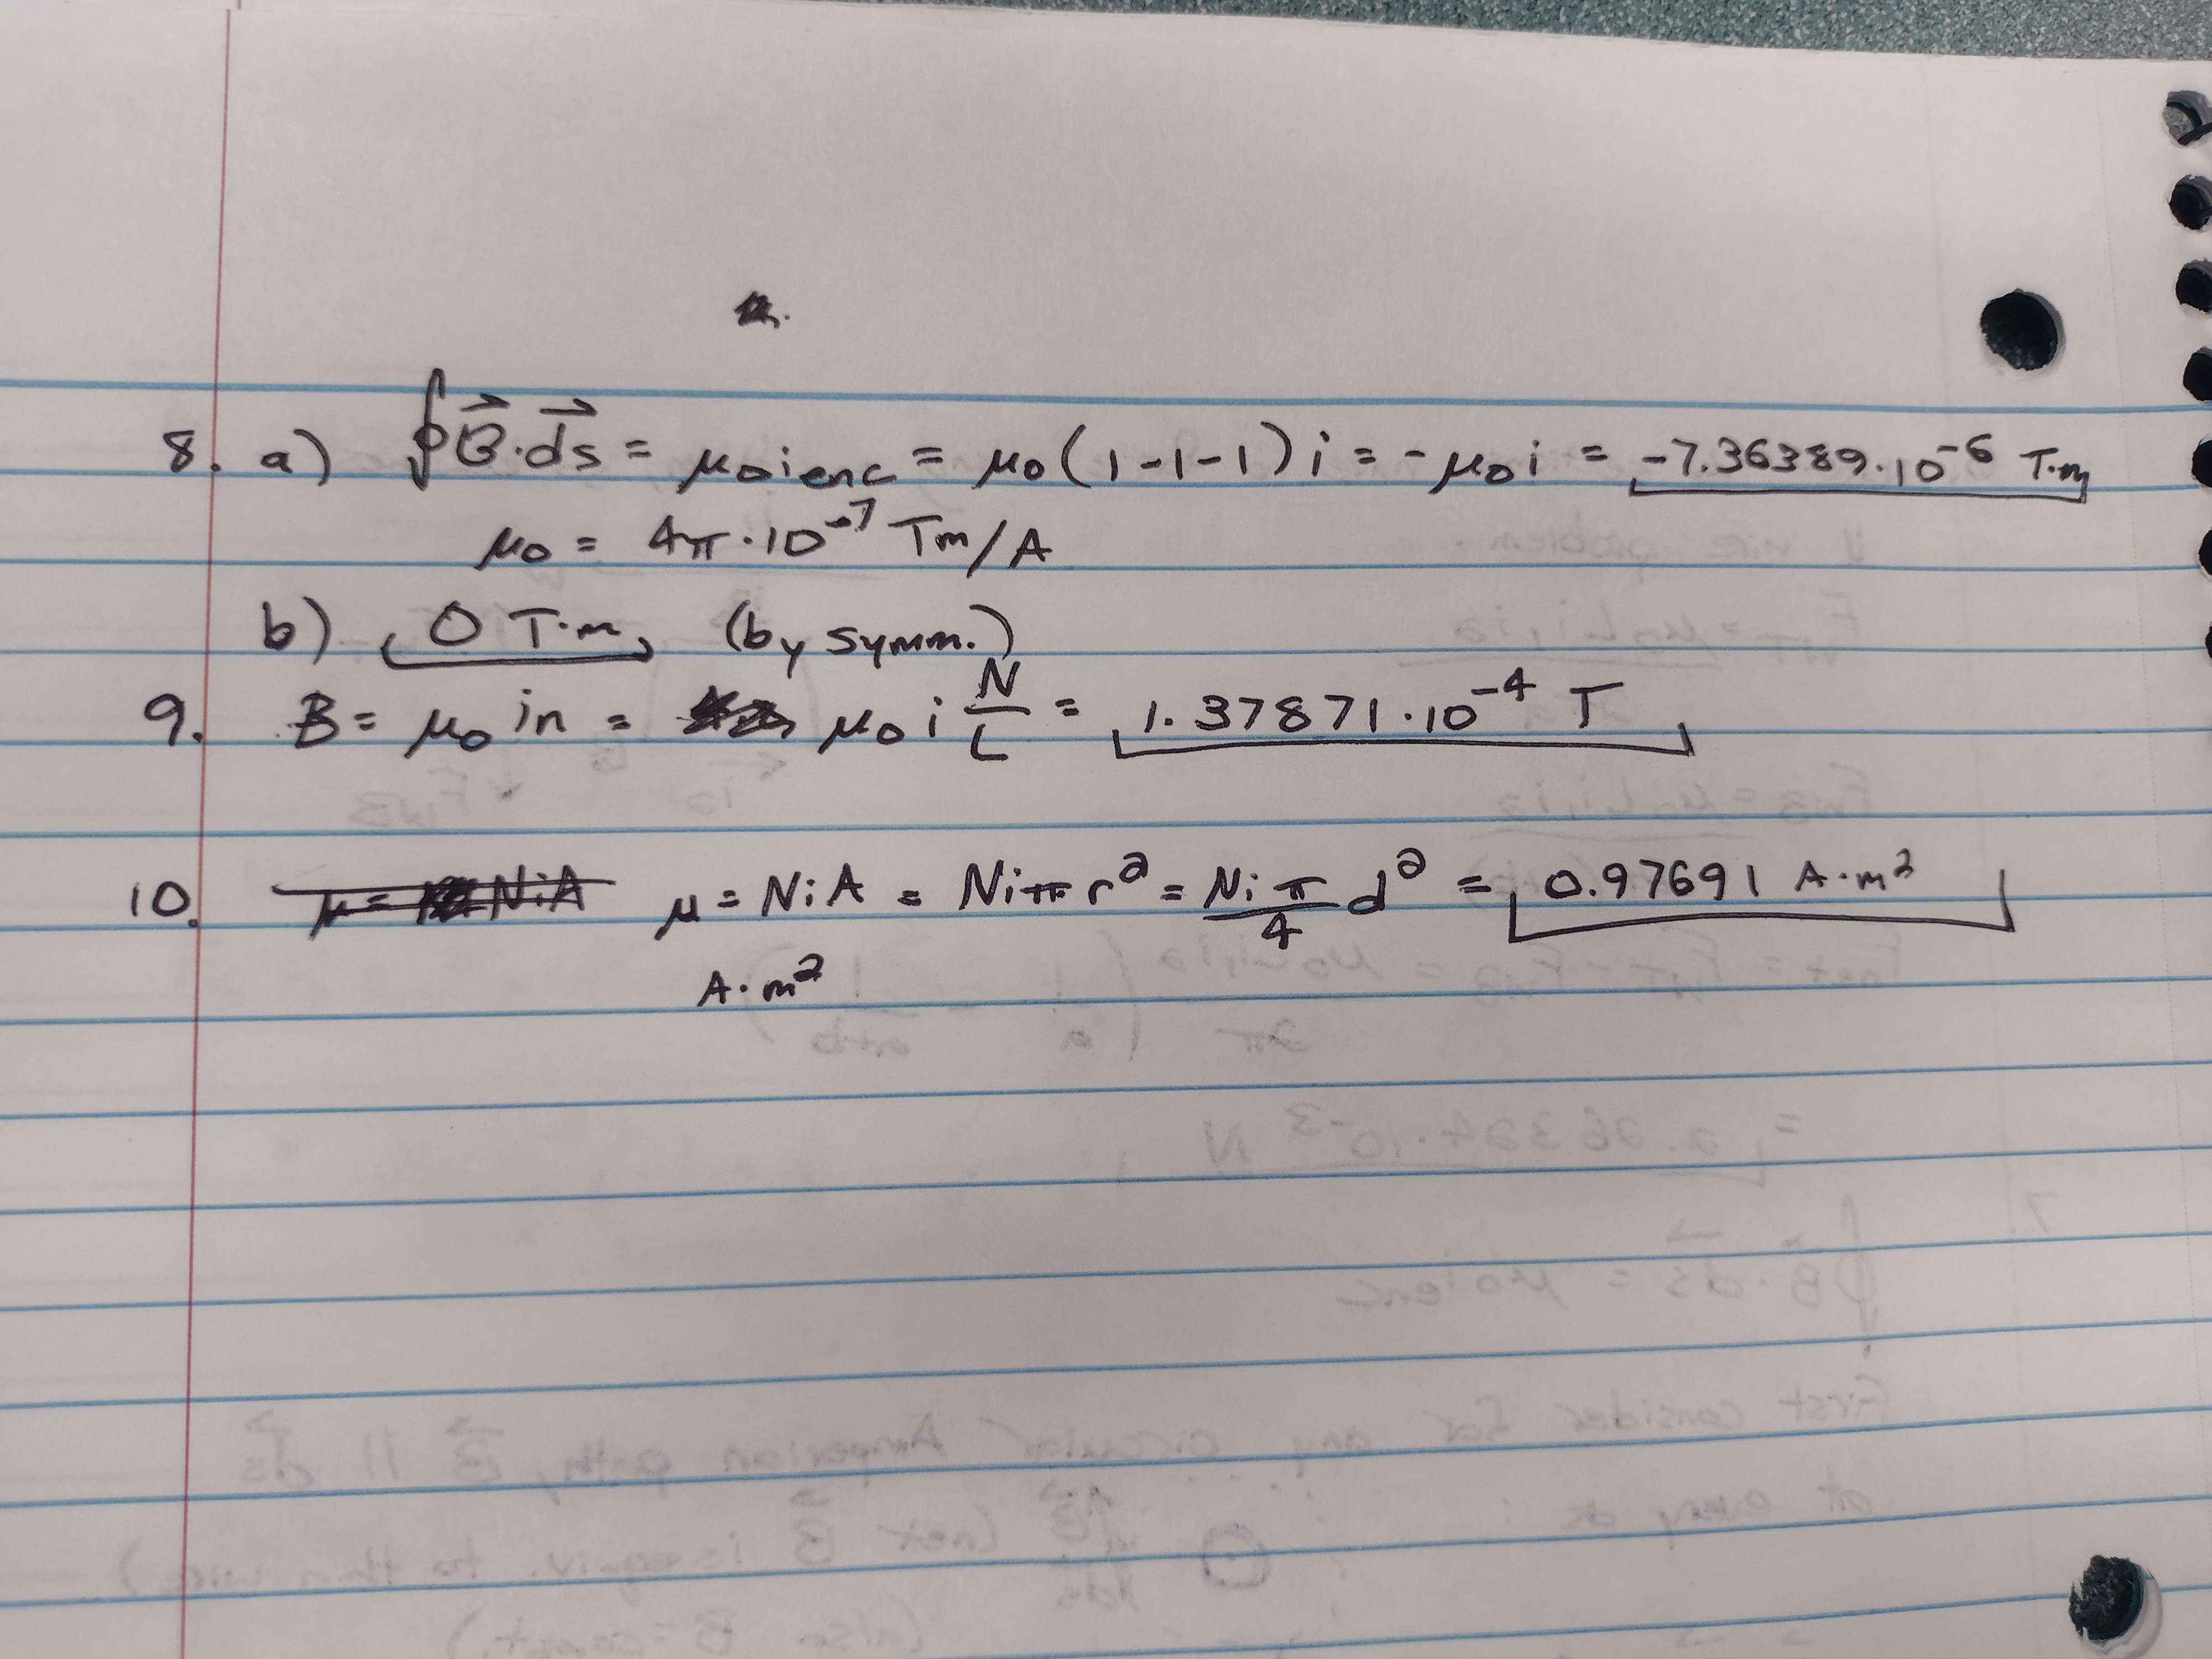 8. a) ∮B⃗·ds⃗ = μ₀ienc = μ₀(1-1-1)i = -μ₀i = -7.36389·10⁻⁶ T·m
μ₀ = 4π·10⁻⁷ Tm/A
b) 0 T·m (by symm.)
9. B = μ₀in = μ₀i N/L = 1.37871·10⁻⁴ T
10. μ = NiA μ = NiA = Niπr² = Niπ/4 d² = 0.97691 A·m²
A·m²